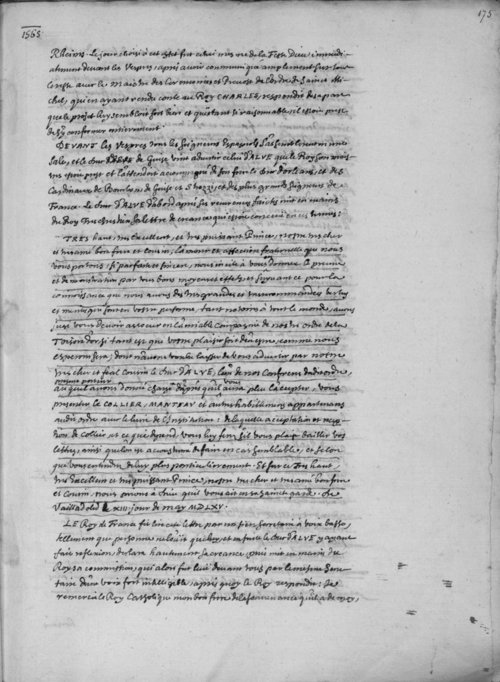 175
1565
Rheims. Le jour choisi à cet effet fut celui mis de la Feste Dieu, immedi-
atement devant les Vespres, apres avoir communiqué amplement sur tout
le reste avec le Maistre des Ceremonies et Prevost de l'ordre de Saint Mi-
chel, qui en ayant rendu conte au Roy CHARLES, respondit de sa part
que le projet luy sembloit fort bon et qu'estant si raisonnable, il estoit prest
de s'y conformer entierement.
DEVANT les Vespres tous les Seigneurs Espagnols
sale, et le de Guise vint advertir celui D'ALVE que le Roy son mais-
tre estoit prest et l'attendoit accompagné de son frere le d'Orleans, et des
Cardinaux de Bourbon, de Guise et Strozzi, et des plus grands Seigneurs de
France. Le D'ALVE d'abord apres les reverences faictes mit en mains
du Roy Treschrestien la lettre de creance qui estoit conceuë en ces termes:
TRES haut, tres excellent, et tres puissant Prince, nostre tres cher
et tres amé bon frere et cousin, l'amour et affection fraternelle que nous
vous portons, si parfaite et sincere, nous incite à vous donner
et demonstration par tous bons moyens et effets, et suyvant ce pour la
connoissance que nous avons des tresgrandes et tresrecommandées vertus
et merites qui sont en votre personne, tant notoires à tout le monde, avons
vous devoir associer en l'amiable Compagnie de nostre ordre de la
Toison d'or, si tant est que votre plaisir soit d'en estre, comme nous
esperons sera; dont n'avons voulu laisser de vous advertir par nostre
tres cher et feal cousin le D'ALVE, l'un de nos Confreres dudit ordre,
present porteur
auquel avons donné charge depuis qu'il vous aura pleu l'accepter, vous
presenter le COLLIER, MANTEAU et autres habillemens appartenans
audit ordre avec le livre de l'institution: de laquelle acceptation et recep-
tion de Collier, et ce que dependt, vous luy ferez s'il vous plaist bailler vos
lettres, ainsi qu'on est accoustumé de faire en cas semblable, et selon
que vous entendrez de luy plus particulierement. Et sur ce Tres haut,
tres excellent et tres puissant Prince, nostre tres cher et tres amé bon frere
et Cousin, nous prions à Dieu qu'il vous ait en sa sainte garde. De
Vailladolid le XIII jour de may MDLXV.
LE Roy de France fit lire cette lettre par un sien Secretaire à voix basse,
tellement que personne ne l'ouit que luy, et ensuite le D'ALVE y ayant
fait reflexion, declara hautement sa creance, puis mit en mains du
Roy sa commission, qui alors fut luë devant tous par le mesme Secre-
taire d'une voix fort intelligible, apres quoy le Roy respondit: Je
remercie le Roy Catholique mon bon frere de la souvenance qu'il a de moy,